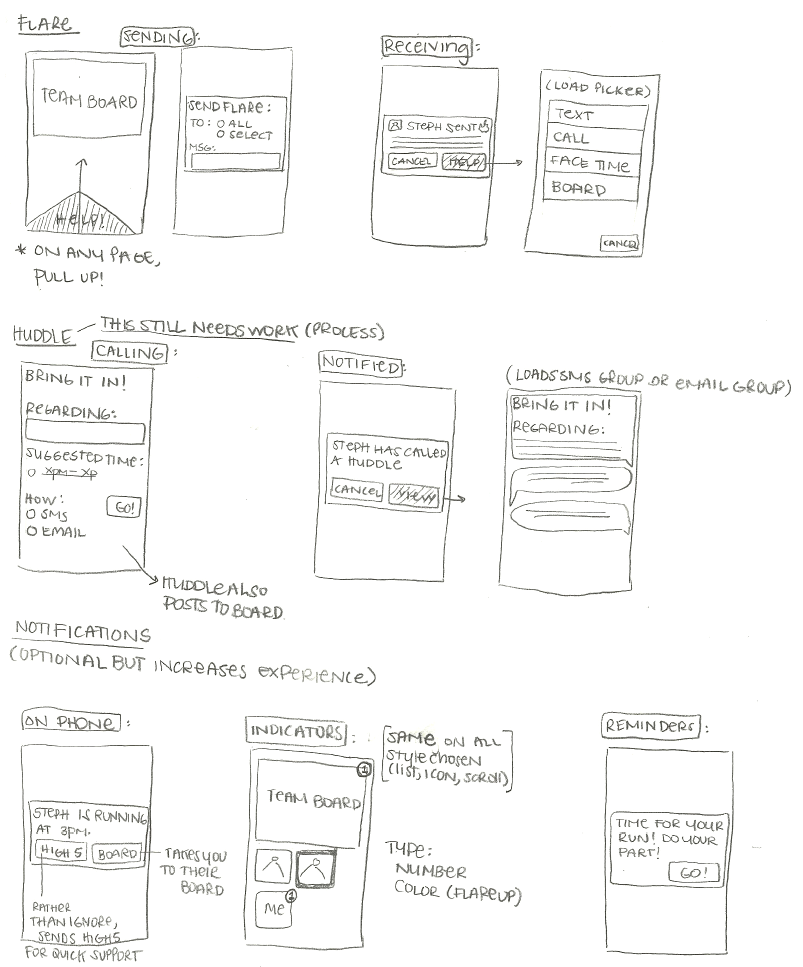 FLARE
SENDING:
TEAM BOARD
HELP!
* ON ANY PAGE,
PULL UP!
SEND FLARE:
TO: O ALL
O SELECT
MSG:
RECEIVING:
STEPH SENT
CANCEL
HELP
(LOAD PICKER)
TEXT
CALL
FACE TIME
BOARD
CANCEL
HUDDLE — THIS STILL NEEDS WORK (PROCESS)
CALLING:
BRING IT IN!
REGARDING:
SUGGESTED TIME:
O XPM-XP
HOW:
O SMS
O EMAIL
GO!
HUDDLE ALSO
POSTS TO BOARD
NOTIFIED:
STEPH HAS CALLED
A HUDDLE
CANCEL
VIEW
(LOADS SMS GROUP OR EMAIL GROUP)
BRING IT IN!
REGARDING:
NOTIFICATIONS
(OPTIONAL BUT INCREASES EXPERIENCE)
ON PHONE:
STEPH IS RUNNING
AT 3PM.
HIGH 5
BOARD
TAKES YOU
TO THEIR
BOARD
RATHER
THAN IGNORE,
SENDS HIGH5
FOR QUICK SUPPORT
INDICATORS:
1
TEAM BOARD
ME
1
[SAME ON ALL
STYLE CHOSEN
(LIST, ICON, SCROLL)]
TYPE:
NUMBER
COLOR (FLARE UP)
REMINDERS:
TIME FOR YOUR
RUN! DO YOUR
PART!
GO!